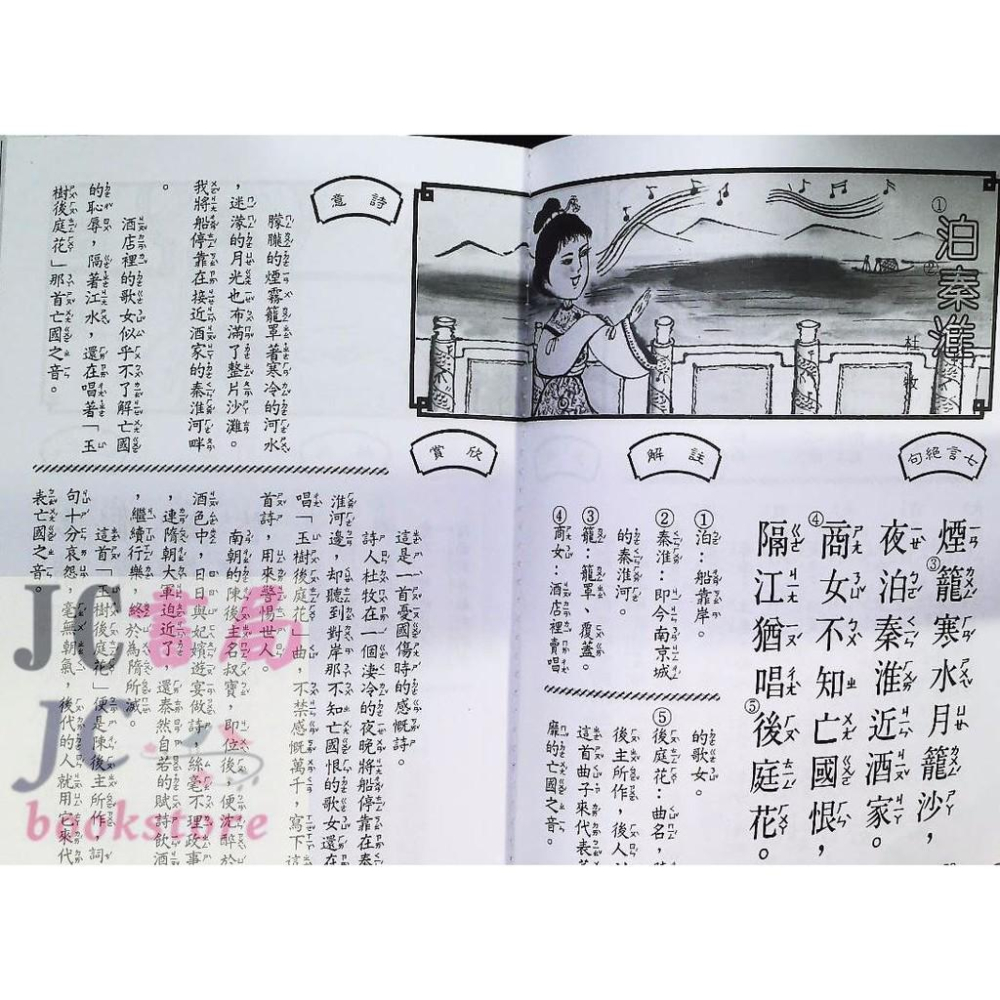 ①泊②秦淮
杜牧
七言絕句
煙③籠寒水月籠沙，
夜泊秦淮近酒家。
④商女不知亡國恨，
隔江猶唱⑤後庭花。
註解
①泊：船靠岸。
②秦淮：即今南京城
的秦淮河。
③籠：籠罩、覆蓋。
④商女：酒店裡賣唱
的歌女。
⑤後庭花：曲名，
後主所作，後人
這首曲子來代表
靡的亡國之音。
詩意
朦朧的煙霧籠罩著寒冷的河水
，迷濛的月光也布滿了整片沙灘。
我將船停靠在接近酒家的秦淮河畔
。
酒店裡的歌女似乎不了解亡國
的恥辱，隔著江水，還在唱著「玉
樹後庭花」那首亡國之音。
欣賞
這是一首憂國傷時的感慨詩。
詩人杜牧在一個淒冷的夜晚將船停靠在秦
淮河邊，却聽到對岸那不知亡國恨的歌女還在
唱「玉樹後庭花」曲，不禁感慨萬千，寫下這
首詩，用來警惕世人。
南朝的陳後主名叔寶，即位後，便沈醉於
酒色中，日日與妃嬪遊宴做詩，絲毫不理政事
，連隋朝大軍迫近了，還泰然自若的賦詩飲酒
，繼續行樂，終於為隋所滅。
這首「玉樹後庭花」便是陳後主所作，詞
句十分哀怨，毫無朝氣，後代的人就用它來代
表亡國之音。
JC書局
JC
bookstore